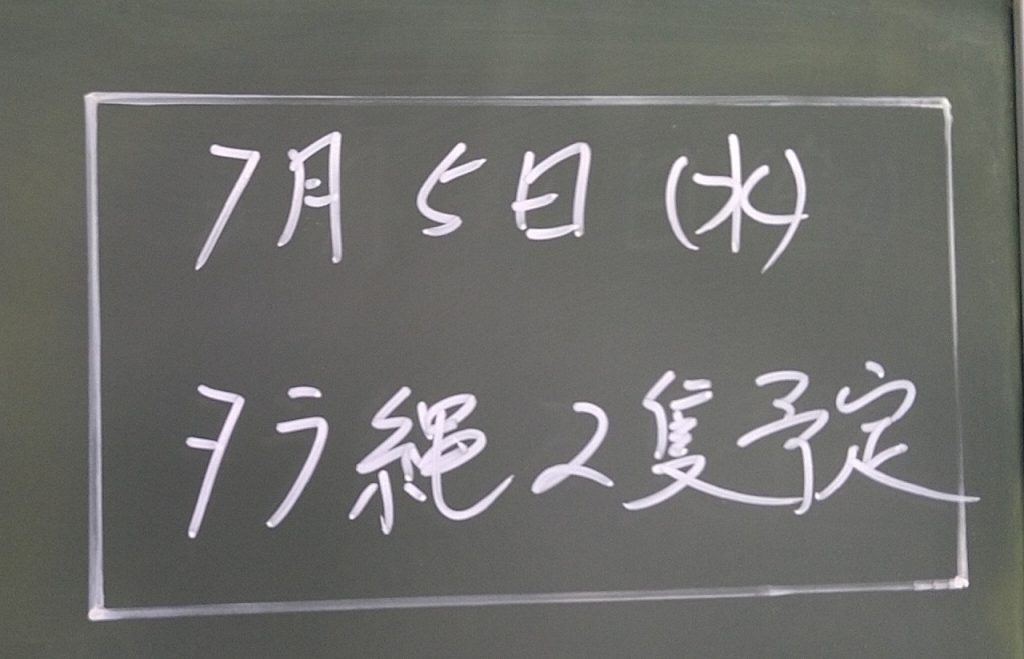 7月5日(水)
タラ縄2隻予定